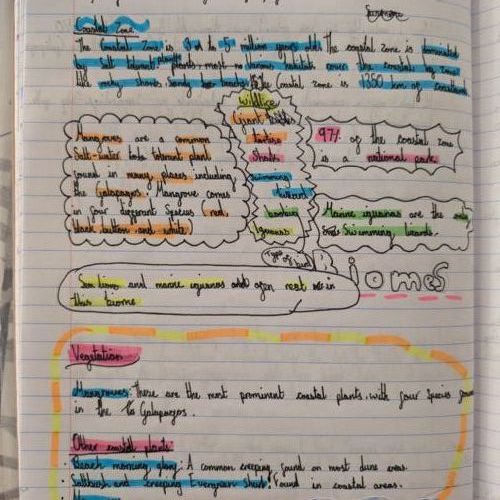 Coastal Zone.
The Coastal Zone is 3 to 5 million years old. The coastal zone is dominated
by salt tolerant plants most various habitats cover the coastal zone
like rocky shores, sandy the Coastal zone is 1350 km of coastland
Wildlife
Giant
Tortise
Sharks
Swimming
Lizard
Iguanas
Mangroves are a common
Salt-water tolerant plant
found in many places including
the Galapagos. Mangrove comes
in four different Species (red,
black button and white
97% of the coastal zone
is a national park.
Marine iguanas are the
Swimming lizards.
Type of
Biomes
Sea lions and marine iguanas often rest in
this biome
Vegetation
Mangroves: These are the most prominent coastal plants, with four Species
in the Galapagos.
Other coastal plants
Beach morning glory: A common creeping found on most dune areas.
Saltbush and creeping Evergreen Shrub: Found in coastal areas.